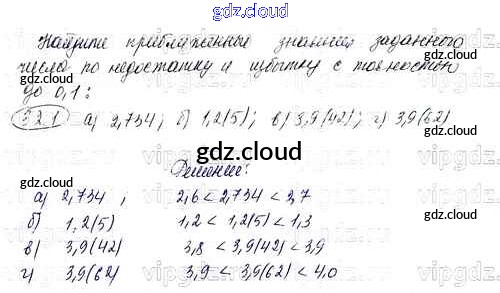 gdz.cloud
Найдите приближенные значения заданного
числа по недостатку и избытку с точностью
до 0,1:
32.1 а) 2,734; б) 1,2(5); в) 3,9(42); г) 3,9(62)
gdz.cloud
Решение:
а) 2,734; 2,6 < 2,734 < 2,7
б) 1,2(5) 1,2 < 1,2(5) < 1,3
в) 3,9(42) 3,8 < 3,9(42) < 3,9
г) 3,9(62) 3,9 < 3,9(62) < 4,0
gdz.cloud
gdz.cloud
gdz.cloud
gdz.cloud